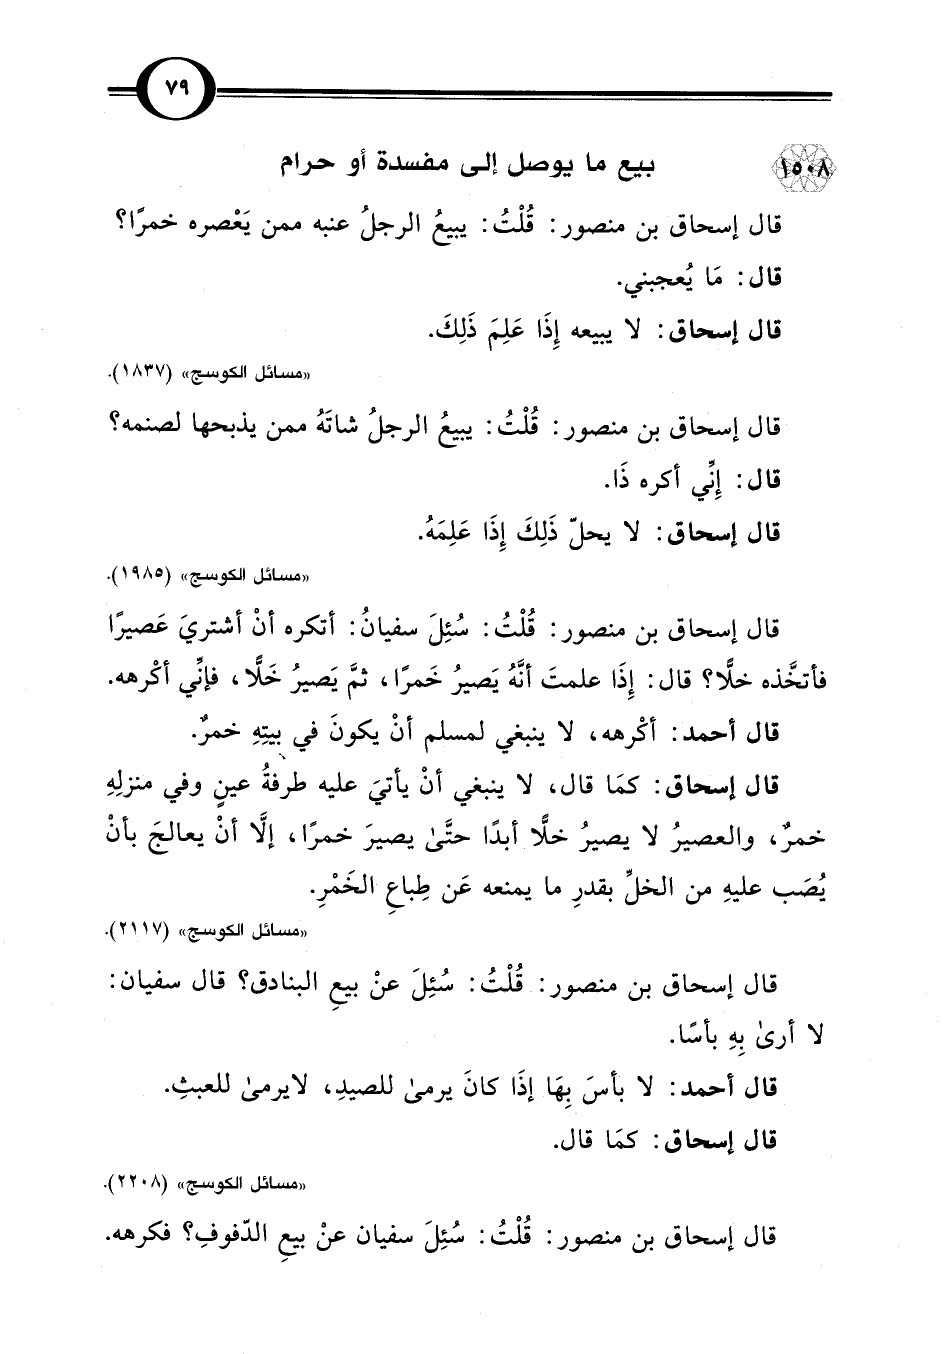 ٧٩
١٥٠٨ بيع ما يوصل إلى مفسدة أو حرام
قال إسحاق بن منصور: قُلْتُ: يبيعُ الرجلُ عنبه ممن يَعْصره خمرًا؟
قال: مَا يُعجبني.
قال إسحاق: لا يبيعه إِذَا عَلِمَ ذَلِكَ.
«مسائل الكوسج» (١٨٣٧).
قال إسحاق بن منصور: قُلْتُ: يبيعُ الرجلُ شاتَهُ ممن يذبحها لصنمه؟
قال: إِنِّي أكره ذَا.
قال إسحاق: لا يحلّ ذَلِكَ إِذَا عَلِمَهُ.
«مسائل الكوسج» (١٩٨٥).
قال إسحاق بن منصور: قُلْتُ: سُئِلَ سفيانُ: أتكره أنْ أشتريَ عَصيرًا
فأتخَّذه خلًّا؟ قال: إِذَا علمتَ أنَّهُ يَصيرُ خَمرًا، ثمَّ يَصيرُ خَلًّا، فإنِّي أكْرهه.
قال أحمد: أكْرهه، لا ينبغي لمسلم أنْ يكونَ في بيتِهِ خمرٌ.
قال إسحاق: كمَا قال، لا ينبغي أنْ يأتيَ عليه طرفةُ عينٍ وفي منزلِهِ
خمرٌ، والعصيرُ لا يصيرُ خلًّا أبدًا حتَّىٰ يصيرَ خمرًا، إلَّا أنْ يعالجَ بأنْ
يُصَب عليهِ من الخلِّ بقدرِ ما يمنعه عَن طِباعِ الخَمْرِ.
«مسائل الكوسج» (٢١١٧).
قال إسحاق بن منصور: قُلْتُ: سُئِلَ عنْ بيعِ البنادق؟ قال سفيان:
لا أرىٰ بِهِ بأسًا.
قال أحمد: لا بأسَ بِهَا إذَا كانَ يرمىٰ للصيدِ، لايرمىٰ للعبثِ.
قال إسحاق: كمَا قال.
«مسائل الكوسج» (٢٢٠٨).
قال إسحاق بن منصور: قُلْتُ: سُئِلَ سفيان عنْ بيعِ الدّفوفِ؟ فكرهه.